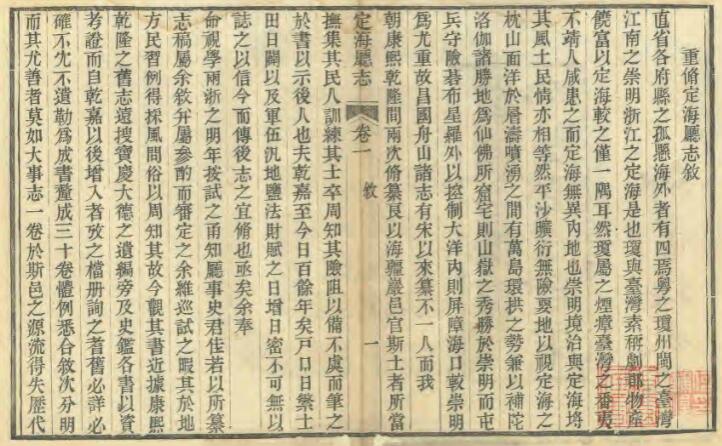 重脩定海廳志敘
直省各府縣之孤懸海外者有四焉粵之瓊州閩之臺灣
江南之崇明浙江之定海是也瓊與臺灣素稱劇郡物產
饒富以定海較之僅一隅耳然瓊屬之煙瘴臺灣之番夷
不靖人咸患之而定海無異內地也崇明境治與定海埒
其風土民情亦相等然平沙曠衍無險要地以視定海之
枕山面洋於層濤噴湧之間有萬島環拱之勢兼以補陀
洛伽諸勝地為仙佛所窟宅則山嶽之秀勝於崇明而屯
兵守險碁布星羅外以控制大洋內則屏障海口較崇明
為尤重故昌國舟山諸志有宋以來纂不一人而我
朝康熙乾隆間兩次脩纂良以海疆巖邑官斯土者所當
定海廳志 卷一 敘 一
撫集其民人訓練其士卒周知其險阻以備不虞而筆之
於書以示後人也夫乾嘉至今日百餘年矣戶口日繁土
田日闢以及軍伍汛地鹽法財賦之日增日密不可無以
誌之以信今而傳後志之宜脩也亟矣余奉
命視學兩浙之明年按試之甬知廳事史君佳若以所纂
志稿屬余敘弁屬參酌而審定之余維巡試之暇其於地
方民習例得採風問俗以周知其故今觀其書近據康熙
乾隆之舊志遠搜寶慶大德之遺編旁及史鑑各書以資
考證而自乾嘉以後增入者攷之檔册詢之耆舊必詳必
確不尢不遺勒為成書釐成三十卷體例悉合敘次分明
而其尤善者莫如大事志一卷於斯邑之源流得失歷代